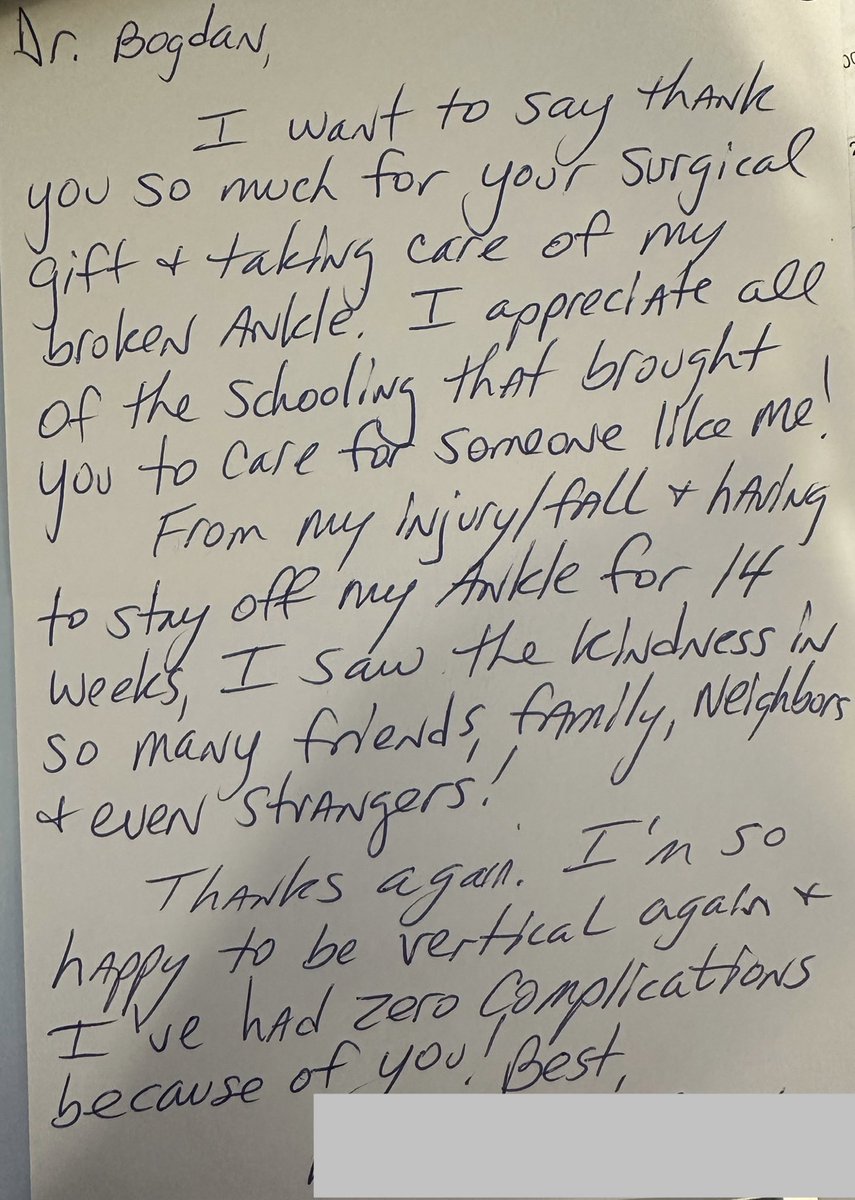 Dr. Bogdan,
I want to say thank
you so much for your surgical
gift & taking care of my
broken ankle. I appreciate all
of the schooling that brought
you to care for someone like me!
From my injury/fall & having
to stay off my ankle for 14
weeks, I saw the kindness in
so many friends, family, neighbors
& even strangers!
Thanks again. I'm so
happy to be vertical again &
I've had zero complications
because of you! Best,